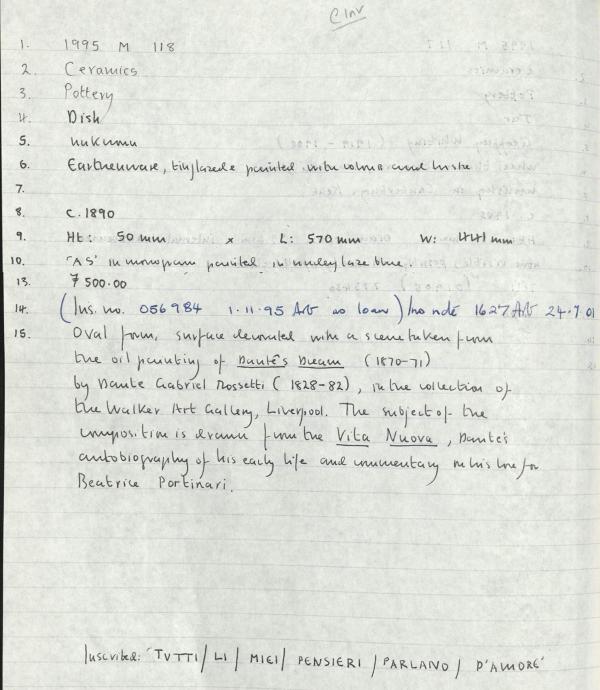 C Inv
1. 1995 M 118
2. Ceramics
3. Pottery
4. Dish
5. unknown
6. Earthenware, tinglazed & painted with colours and lustre
7.
8. c. 1890
9. Ht: 50 mm x L: 570 mm W: 441 mm
10. 'AS' in monogram painted in underglaze blue.
13. 7 500.00
14. (Ins. no. 056984 1.11.95 Art as loan) Ins note 1627 Art 24.7.01
15. Oval form, surface decorated with a scene taken from
the oil painting of Dante's Dream (1870-71)
by Dante Gabriel Rossetti (1828-82), in the collection of
the Walker Art Gallery, Liverpool. The subject of the
composition is drawn from the Vita Nuova, Dante's
autobiography of his early life and commentary on his love for
Beatrice Portinari.
Inscribed: 'TVTTI / LI / MIEI / PENSIERI / PARLANO / D'AMORE'